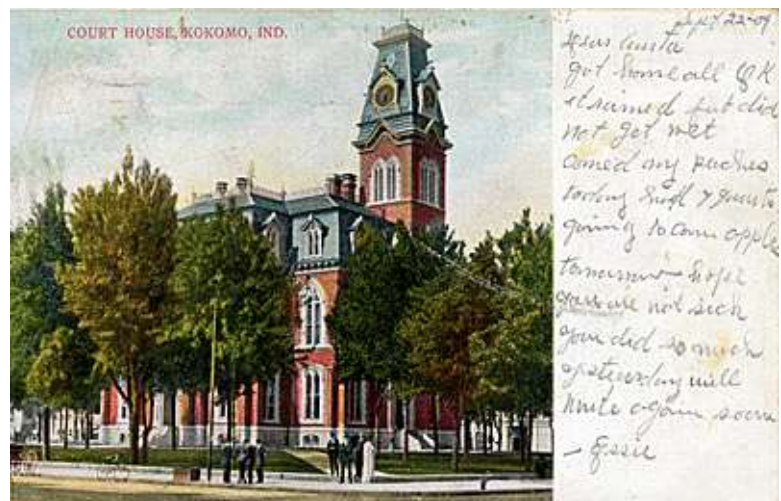 COURT HOUSE, KOKOMO, IND.
Sept 22-09
Dear Aunta
got home all OK
it rained but did
not get wet
caned my peaches
today had 7 quarts
going to can apples
tomorrow hope
you are not sick
you did so much
yesterday will
write again soon
- Essie